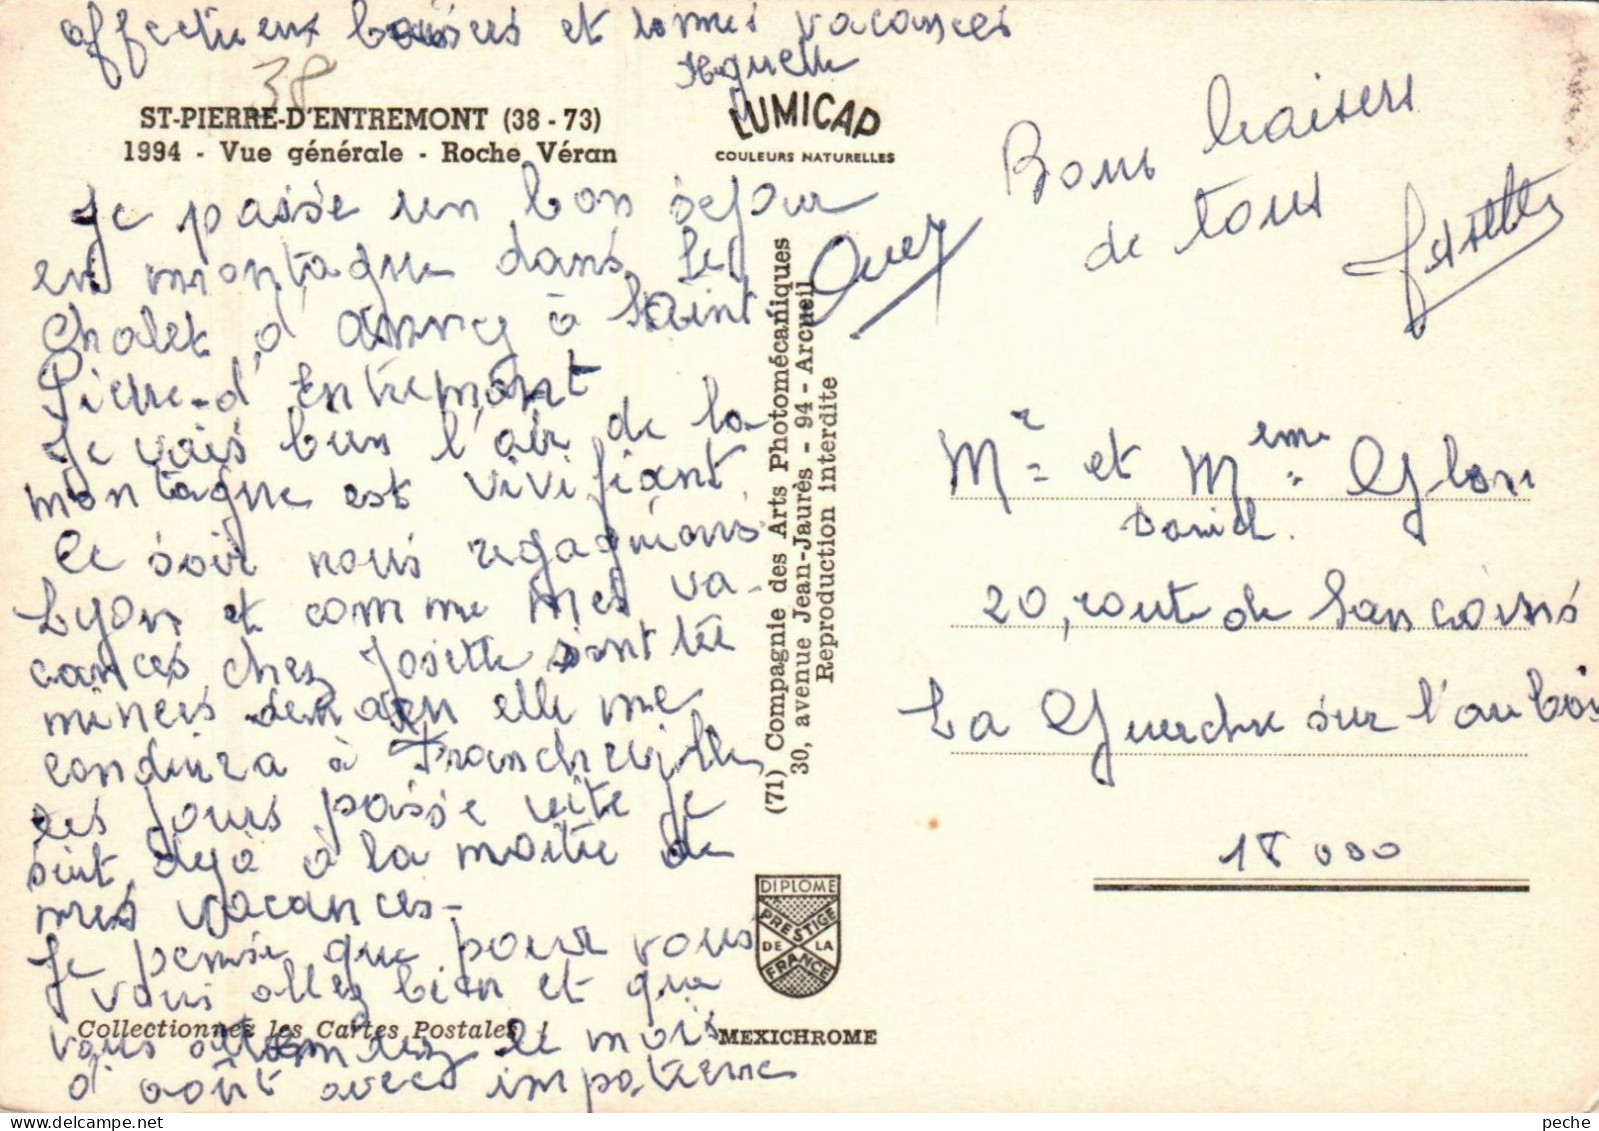 affectueux baisers et bonnes vacances
Huguette
38
ST-PIERRE-D'ENTREMONT (38 - 73)
1994 - Vue générale - Roche Véran
LUMICAP
COULEURS NATURELLES
Je passe un bon sejour
en montague dans le
chalet d'annecy à Saint
Pierre-d'Entremont
Je vais bien l'air de la
montague est vivifiant
le soir nous regagnions
Lyon et comme mes va-
cances chez Josette sont tér
minées demain elle me
conduira à Francheville
les jours passe vite je
suit déjà à la moitié de
mes vacances.
Je pense que pour vous
vous allez bien et que
vous attendez le mois
d'août avec impatience
Collectionnez les Cartes Postales !
(71) Compagnie des Arts Photomécaniques
30, avenue Jean-Jaurès - 94 - Arcueil
Reproduction interdite
DIPLOME
PRESTIGE
DE LA
FRANCE
MEXICHROME
Bons baisers
de tous
Josette
Mr et Mme Glon
Daniel.
20, route de Sancoins
La Guerche sur l'aubois
18 000
peche